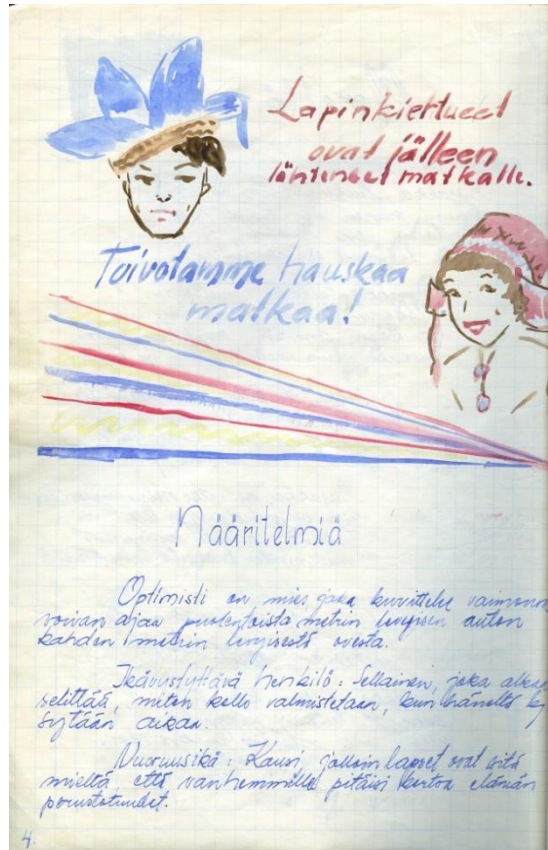 Lapinkiertueet
ovat jälleen
lähteneet matkalle.
Toivotamme hauskaa
matkaa!
Määritelmiä
Optimisti on mies joka kuvittelee vaimonsa
voivan ajaa puolentoista metrin levyisen auton
kahden metrin levyisestä ovesta.
Ikävystyttävä henkilö: Sellainen, joka alkaa
selittää, miten kello valmistetaan, kun häneltä ky
sytään aikaa.
Nuoruusikä: Kausi, jolloin lapset ovat sitä
mieltä, että vanhemmille pitäisi kertoa elämän
perustotuudet.
4.